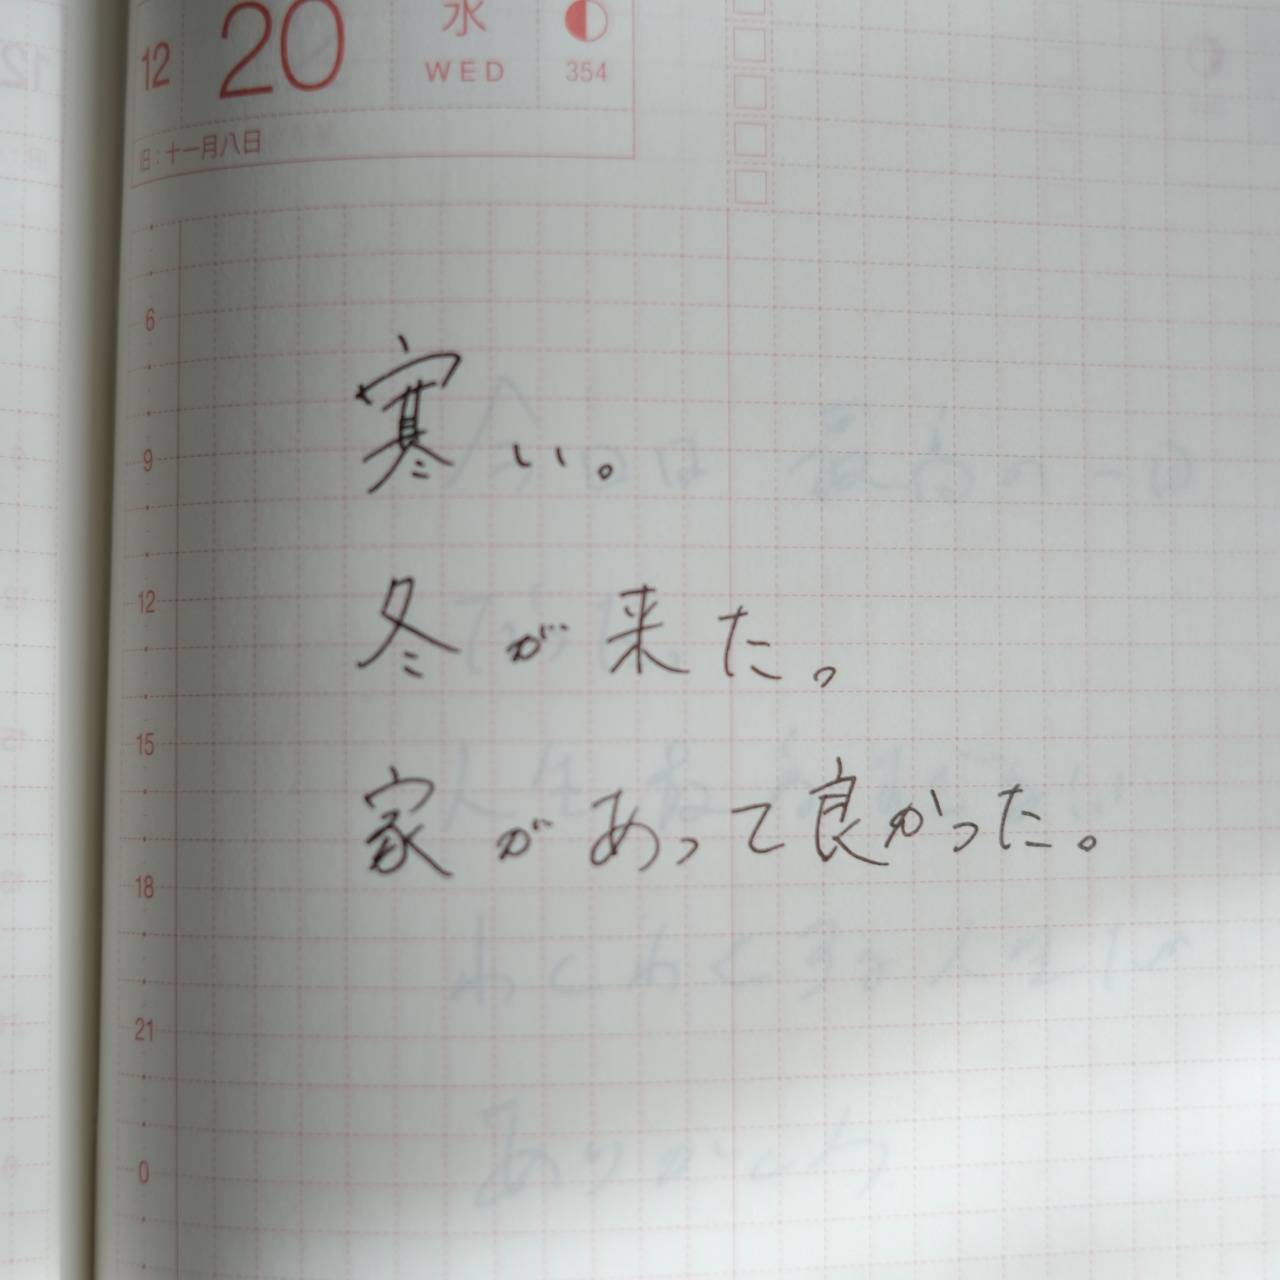 12 20 水 WED 354
旧:十一月八日
6
寒い。
9
12
冬が来た。
15
家があって良かった。
18
21
0